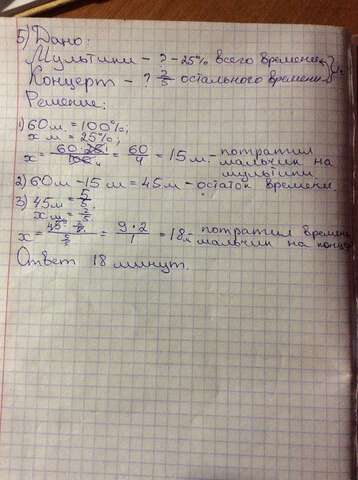 5) Дано:
Мультики - ? - 25% всего времени
Концерт - ? 2/5 остального времени
Решение:
1) 60 м = 100%;
x м = 25%;
x = 60·25/100 = 60/4 = 15 м. - потратил мальчик на мультики
2) 60 м - 15 м = 45 м - остаток времени.
3) 45 м = 5/5
x м = 2/5
x = 45·2/5 / 5/5 = 9·2/1 = 18 м - потратил времени мальчик на конце
Ответ 18 минут.